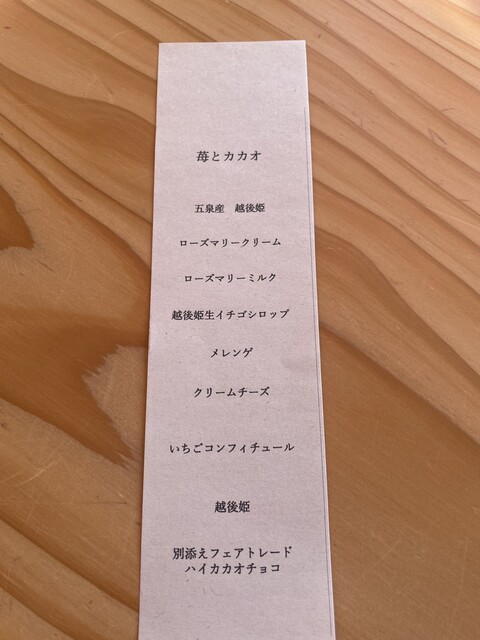 苺とカカオ
五泉産　越後姫
ローズマリークリーム
ローズマリーミルク
越後姫生イチゴシロップ
メレンゲ
クリームチーズ
いちごコンフィチュール
越後姫
別添えフェアトレード
ハイカカオチョコ